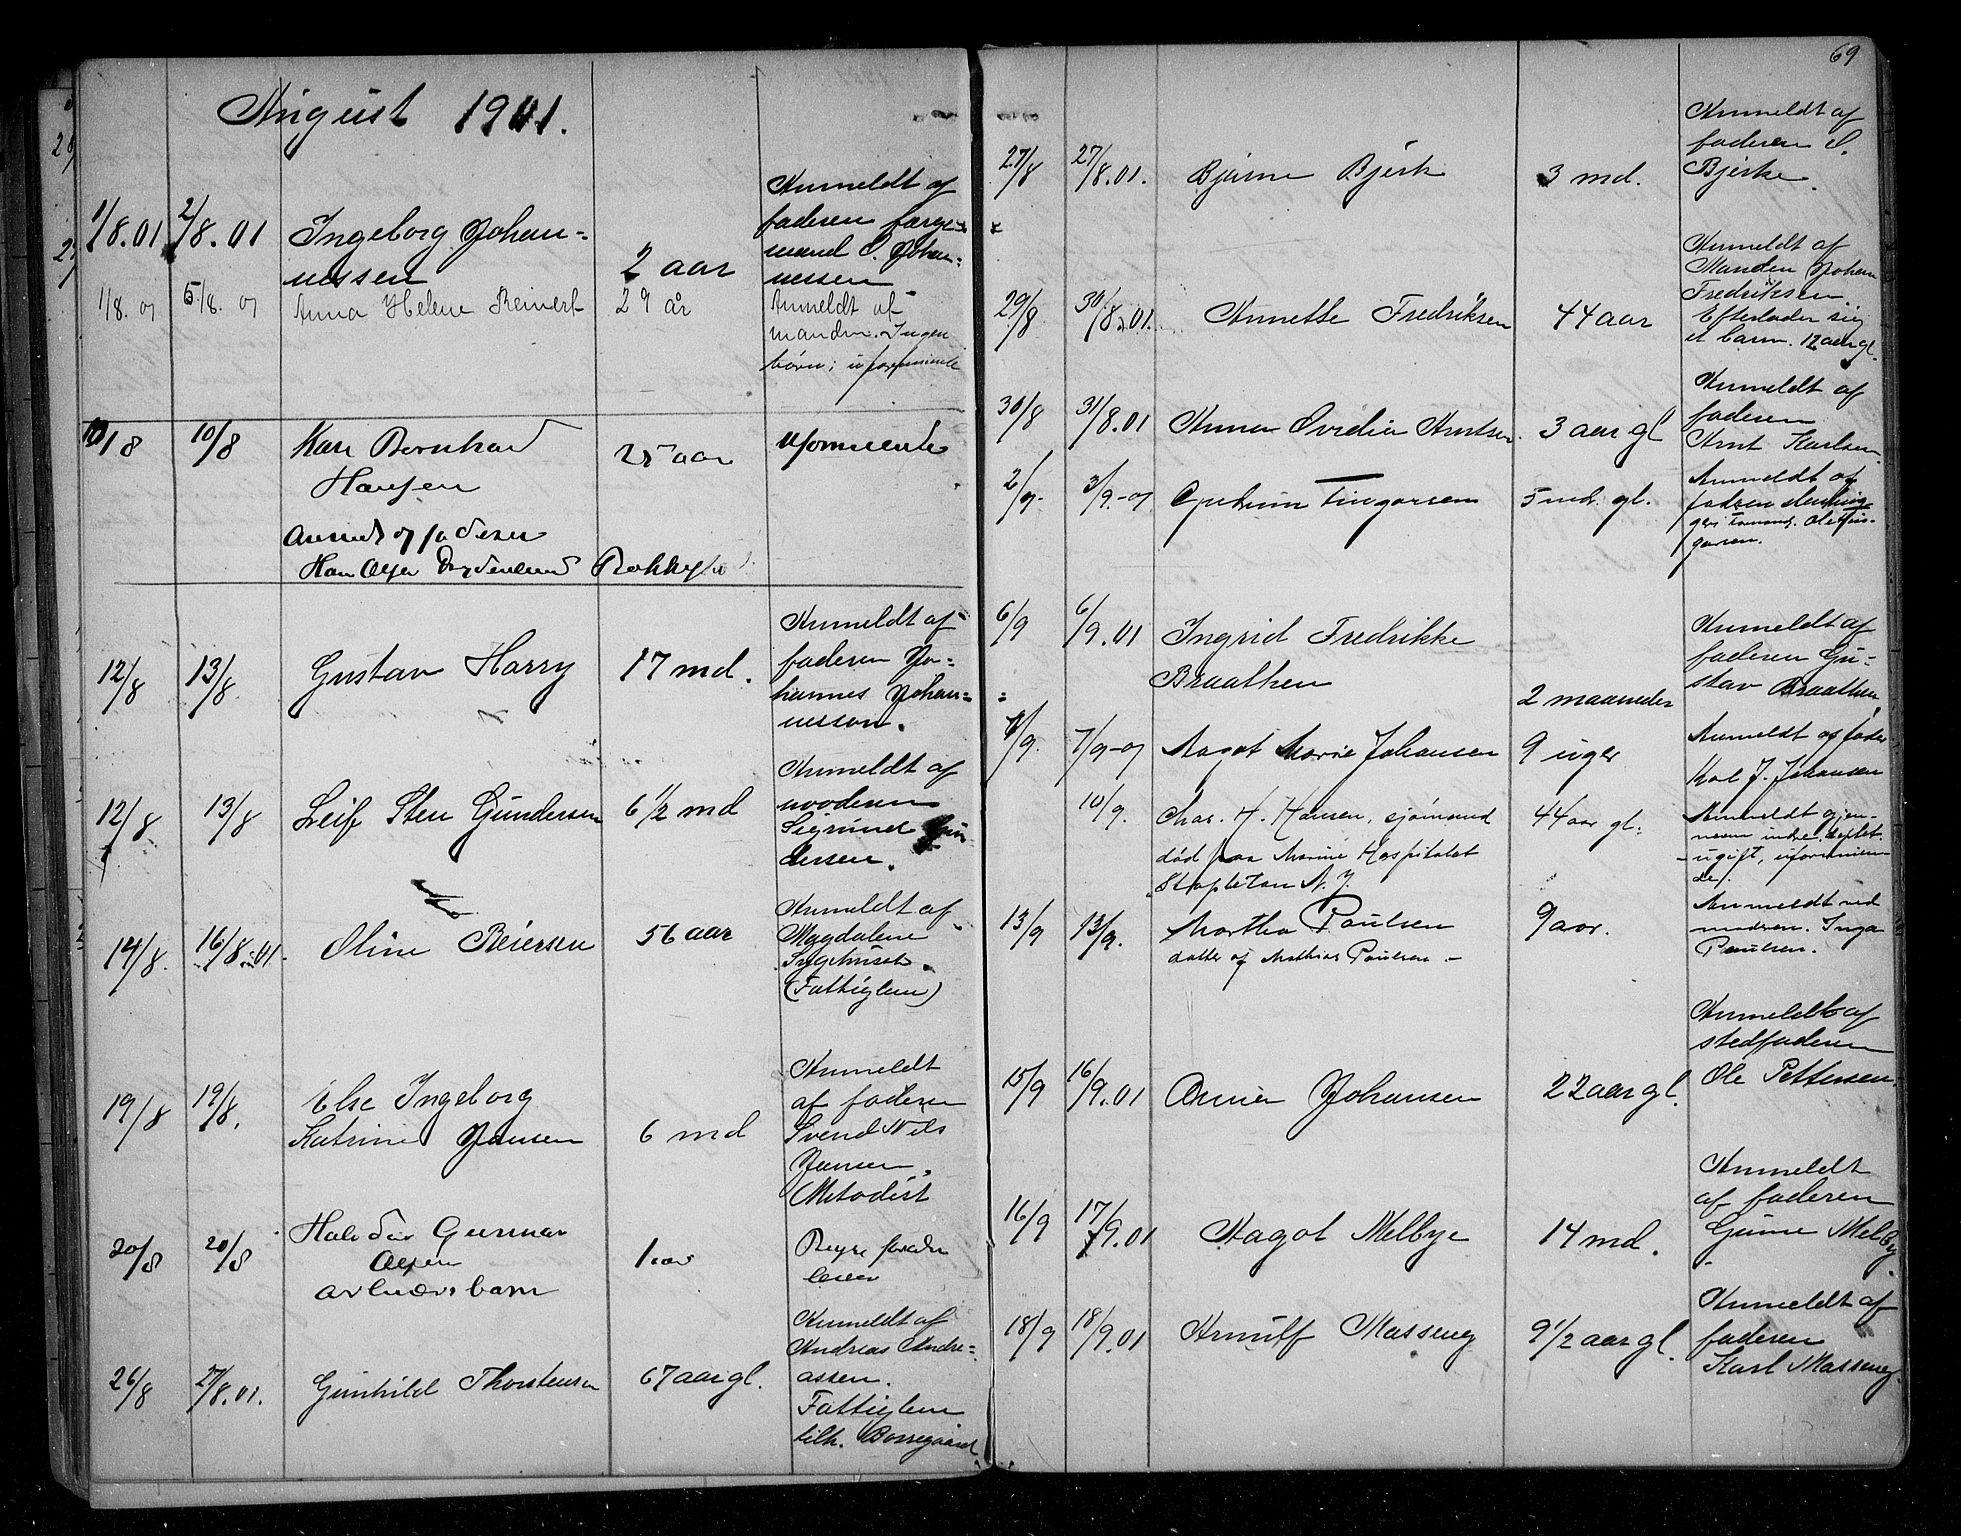 August 1901.
1/8.01 2/8.01 Ingeborg Johan= 2 aar Anmeldt af
nessen faderen færge-
mand C. Johan=
nessen
1/8. 01 5/8. 01 Anna Helene Reinert 29 år Anmeldt af
manden. Ingen
børn; uformuende
10/8 10/8 Karl Bernhard 25 aar uformuende
Hansen
Anmeldt af faderen
Hans Olsen
12/8 13/8. Gustav Harry 17 md. Anmeldt af
faderen Jo=
hannes Johan=
nesson.
12/8 13/8 Leif Sten Gundersen 6 1/2 md Anmeldt af
moderen
Sigrund Gun
dersen.
14/8. 16/8.01. Oline Reiersen 56 aar Anmeldt af
Magdalene
Sygehuset.
(Fattiglem)
19/8 19/8. Else Ingeborg 6 md Anmeldt
Katrine Jansen af faderen
Svend Nils
Jansen,
Metodist
20/8 20/8 Gunnar 1 aar
Olsen
arbeidersbarn
26/8 27/8.01. Gunhild Thorstensen 67 aar gl. Anmeldt af
Andreas Andre=
assen.
Fattiglem
tilh. Borregaard
69
27/8 27/8.01. Bjarne Bjerk 3 md. Anmeldt af
faderen C.
Bjerke.
29/8 30/8.01. Annette Fredriksen 44 aar Anmeldt af
Manden Johan
Fredriksen
Efterlader sig
et barn. 12 aar gl.
30/8 31/8.01 Anna Ovidia Arntsen 3 aar gl Anmeldt af
faderen
Arnt Karlsen.
2/9. 3/9.-01 Tingarsen 5 md. gl. Anmeldt af
faderen
6/9 6/9.01 Ingrid Fredrikke Anmeldt af
Braathen 2 maaneder faderen Gu-
stav Braathen
6/9. 7/9-01 Aagot Marie Johansen 9 uger Anmeldt af fader
Karl J. Johansen
10/9. Chas. H. Hansen, sjømand 44 aar gl. Anmeldt gjen-
død paa Marine Hospitalet nem indre. deptet
Stapleton N. Y. - ugift, uformuen
de/.
13/9 13/9. Martha Paulsen 9 aar. Anmeldt ved
datter af Mathias Paulsen. - modren. Inga
Paulsen.
15/9 16/9.01 Anna Johansen 22 aar gl. Anmeldt af
stedfaderen
Ole Pettersen.
16/9 17/9.01 Aagot Melbye 14 md. Anmeldt
af faderen
Gunne Melby.
18/9 18/9.01 Arnulf Masseng 9 1/2 aar gl. Anmeldt af
faderen
Karl Masseng.